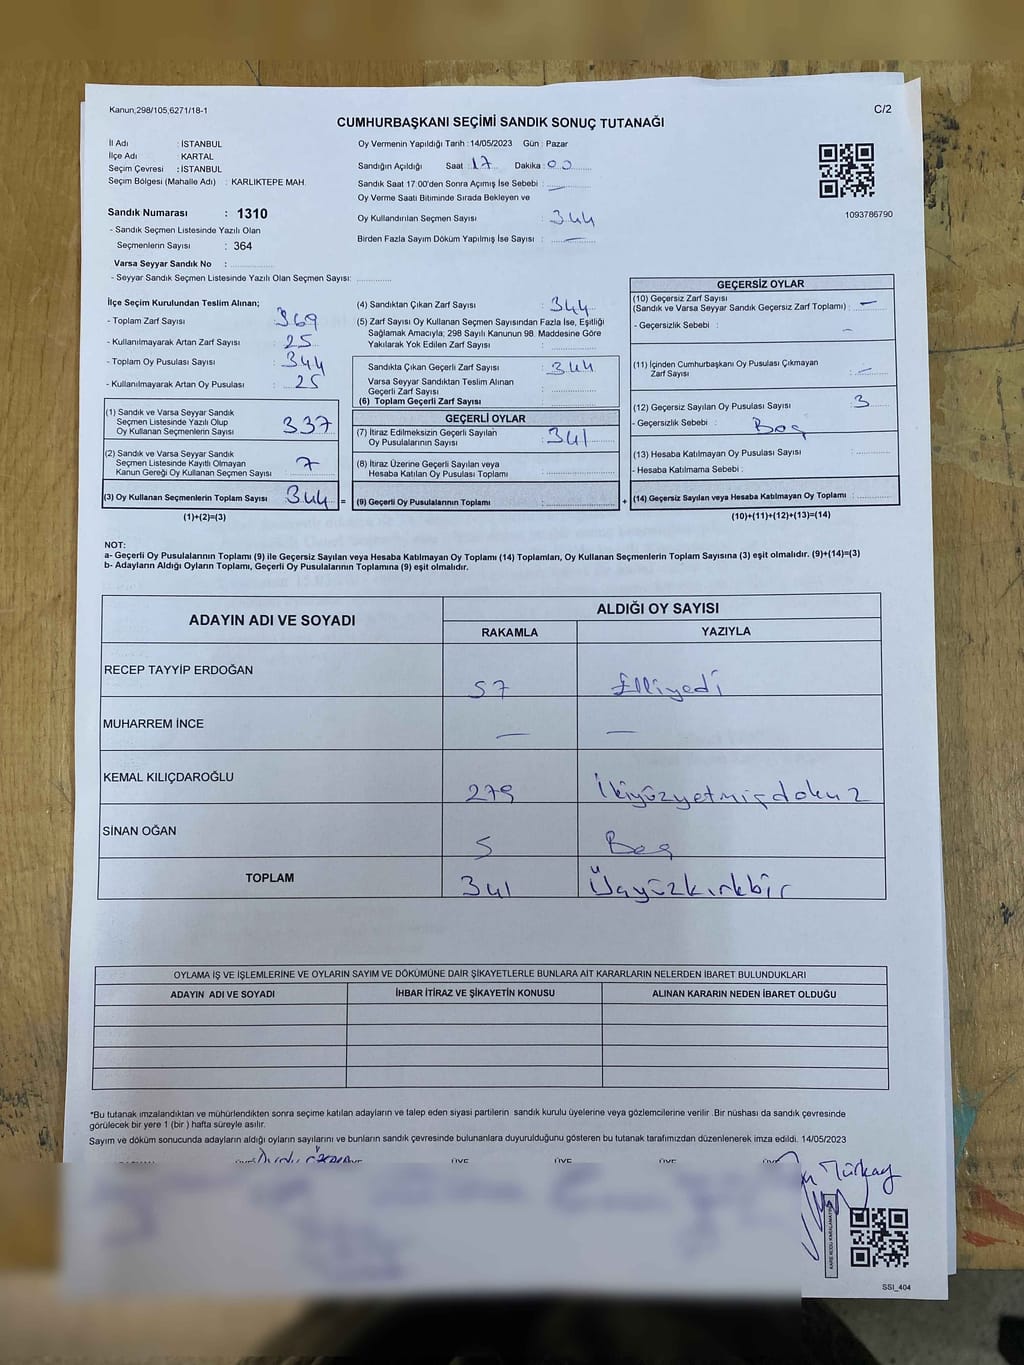 Kanun,298/105,6271/18-1
C/2
CUMHURBAŞKANI SEÇİMİ SANDIK SONUÇ TUTANAĞI
İl Adı : İSTANBUL
İlçe Adı : KARTAL
Seçim Çevresi : İSTANBUL
Seçim Bölgesi (Mahalle Adı) : KARLIKTEPE MAH.
Sandık Numarası : 1310
- Sandık Seçmen Listesinde Yazılı Olan
Seçmenlerin Sayısı : 364
Varsa Seyyar Sandık No :
- Seyyar Sandık Seçmen Listesinde Yazılı Olan Seçmen Sayısı:
Oy Vermenin Yapıldığı Tarih : 14/05/2023 Gün : Pazar
Sandığın Açıldığı Saat 17 Dakika : 00
Sandık Saat 17:00'den Sonra Açımış İse Sebebi : —
Oy Verme Saati Bitiminde Sırada Bekleyen ve
Oy Kullandırılan Seçmen Sayısı : 344
Birden Fazla Sayım Döküm Yapılmış İse Sayısı : —
1093786790
İlçe Seçim Kurulundan Teslim Alınan;
- Toplam Zarf Sayısı : 369
- Kullanılmayarak Artan Zarf Sayısı : 25
- Toplam Oy Pusulası Sayısı : 344
- Kullanılmayarak Artan Oy Pusulası : 25
(1) Sandık ve Varsa Seyyar Sandık
Seçmen Listesinde Yazılı Olup
Oy Kullanan Seçmenlerin Sayısı : 337
(2) Sandık ve Varsa Seyyar Sandık
Seçmen Listesinde Kayıtlı Olmayan
Kanun Gereği Oy Kullanan Seçmen Sayısı : 7
(3) Oy Kullanan Seçmenlerin Toplam Sayısı : 344 =
(1)+(2)=(3)
(4) Sandıktan Çıkan Zarf Sayısı : 344
(5) Zarf Sayısı Oy Kullanan Seçmen Sayısından Fazla İse, Eşitliği
Sağlamak Amacıyla; 298 Sayılı Kanunun 98. Maddesine Göre
Yakılarak Yok Edilen Zarf Sayısı :
Sandıkta Çıkan Geçerli Zarf Sayısı : 344
Varsa Seyyar Sandıktan Teslim Alınan
Geçerli Zarf Sayısı :
(6) Toplam Geçerli Zarf Sayısı :
GEÇERLİ OYLAR
(7) İtiraz Edilmeksizin Geçerli Sayılan
Oy Pusulalarının Sayısı : 341
(8) İtiraz Üzerine Geçerli Sayılan veya
Hesaba Katılan Oy Pusulası Toplamı :
(9) Geçerli Oy Pusulalarının Toplamı : +
GEÇERSİZ OYLAR
(10) Geçersiz Zarf Sayısı
(Sandık ve Varsa Seyyar Sandık Geçersiz Zarf Toplamı) : —
- Geçersizlik Sebebi : —
(11) İçinden Cumhurbaşkanı Oy Pusulası Çıkmayan
Zarf Sayısı : —
(12) Geçersiz Sayılan Oy Pusulası Sayısı : 3
- Geçersizlik Sebebi : Boş
(13) Hesaba Katılmayan Oy Pusulası Sayısı :
- Hesaba Katılmama Sebebi :
(14) Geçersiz Sayılan veya Hesaba Katılmayan Oy Toplamı :
(10)+(11)+(12)+(13)=(14)
NOT:
a- Geçerli Oy Pusulalarının Toplamı (9) ile Geçersiz Sayılan veya Hesaba Katılmayan Oy Toplamı (14) Toplamları, Oy Kullanan Seçmenlerin Toplam Sayısına (3) eşit olmalıdır. (9)+(14)=(3)
b- Adayların Aldığı Oyların Toplamı, Geçerli Oy Pusulalarının Toplamına (9) eşit olmalıdır.
ADAYIN ADI VE SOYADI ALDIĞI OY SAYISI
RAKAMLA YAZIYLA
RECEP TAYYİP ERDOĞAN 57 Elliyedi
MUHARREM İNCE — —
KEMAL KILIÇDAROĞLU 279 İkiyüzyetmişdokuz
SİNAN OĞAN 5 Beş
TOPLAM 341 Üçyüzkırkbir
OYLAMA İŞ VE İŞLEMLERİNE VE OYLARIN SAYIM VE DÖKÜMÜNE DAİR ŞİKAYETLERLE BUNLARA AİT KARARLARIN NELERDEN İBARET BULUNDUKLARI
ADAYIN ADI VE SOYADI İHBAR İTİRAZ VE ŞİKAYETİN KONUSU ALINAN KARARIN NEDEN İBARET OLDUĞU
*Bu tutanak imzalandıktan ve mühürlendikten sonra seçime katılan adayların ve talep eden siyasi partilerin sandık kurulu üyelerine veya gözlemcilerine verilir .Bir nüshası da sandık çevresinde
görülecek bir yere 1 (bir ) hafta süreyle asılır.
Sayım ve döküm sonucunda adayların aldığı oyların sayılarını ve bunların sandık çevresinde bulunanlara duyurulduğunu gösteren bu tutanak tarafımızdan düzenlenerek imza edildi. 14/05/2023
ÜYE ÜYE ÜYE ÜYE
Türkay
SSI_404